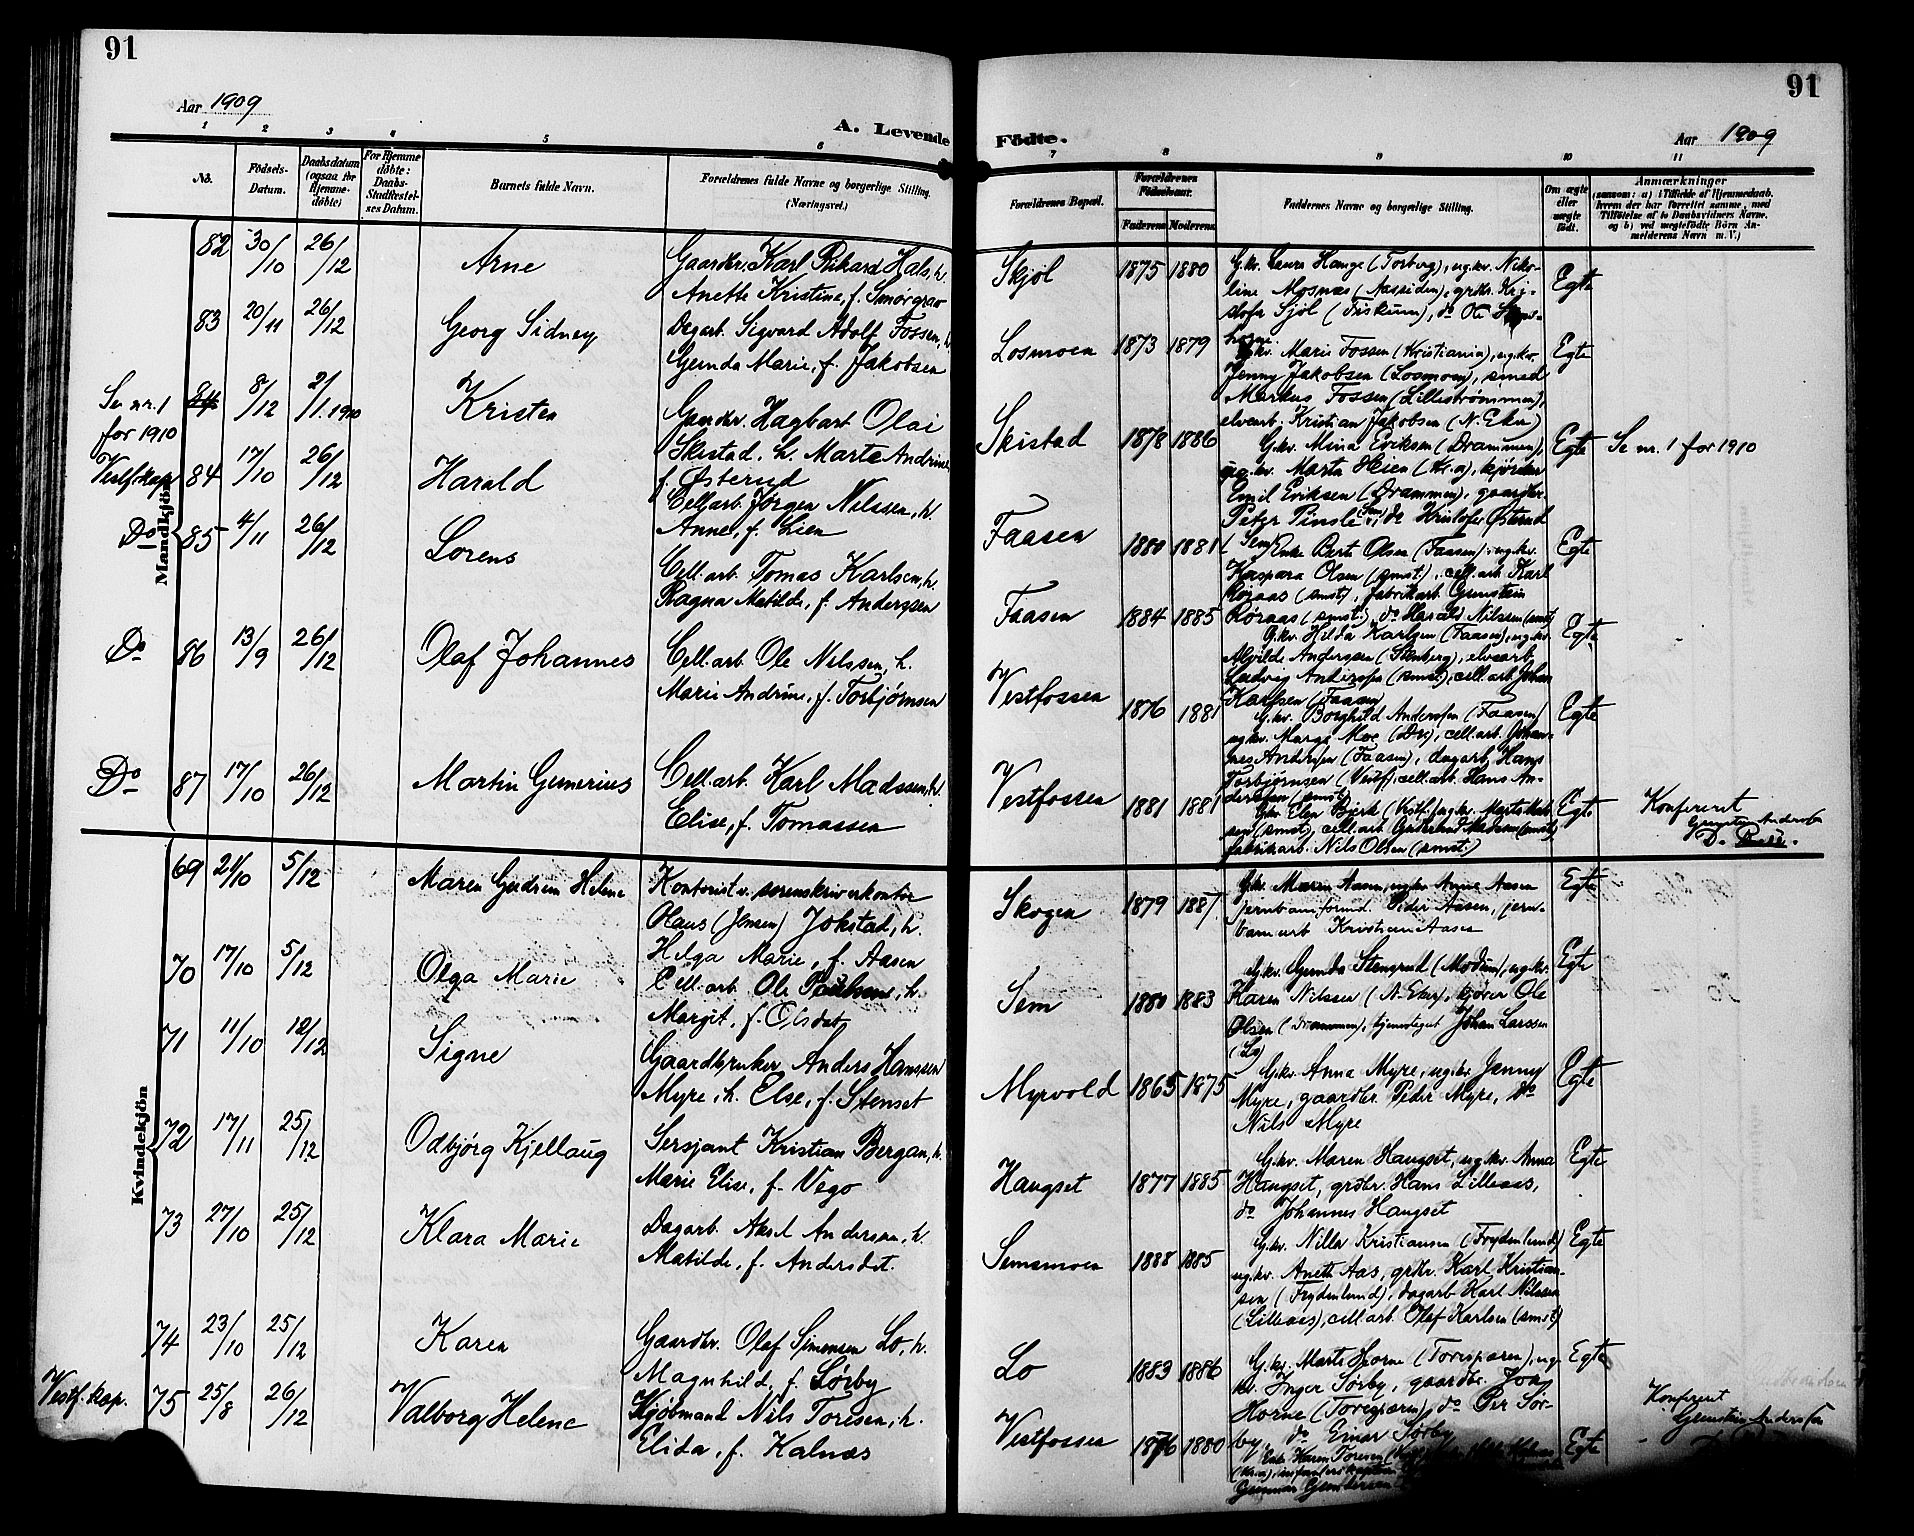 91
91
Aar 1909
Aar 1909
A. Levende Födte.
1 2 3 4 5 6 7 8 9 10 11
No.
Födsels-Datum.
Daabsdatum (ogsaa for Hjemme-döbte)
For Hjemme döbte: Daabs-Stadfæstelses Datum.
Barnets fulde Navn.
Forældrenes fulde Navne og borgerlige Stilling. (Næringsvei.)
Forældrenes Bopæl.
Forældrenes Födselsaar.
Faderens Moderens
Faddernes Navne og borgerlige Stilling.
Om ægte eller uægte født.
Anmærkninger
(saasom: a) i Tilfælde af Hjemmedaab, hvem der har forrettet samme, med Tilföielse af to Daabsvidners Navne, og b) ved uægtefödte Börn Anmelderens Navn m. V.)
Mandkjön
82 30/10 26/12 Arne
Gaardbr. Karl Rikard Hals, h.
Anette Kristine, f. Smörgrav
Skjøl 1875 1880
G.kv. Laura Hauge (Torberg), ug.kv. Niko-
line Mosnæs (Aassiden), grdbr. Kri-
stofer Sjøl (Fiskum), do Ole
Egte
83 20/11 26/12 Georg Sidney
Dagarb. Sigvard Adolf Fossen, h.
Gunda Marie, f. Jakobsen
Losmoen 1873 1879
G.kv. Marie Fossen (Kristiania), ug.kv.
Jenny Jakobsen (Losmoen), smed
Markus Fossen (Lillestrømmen),
elvearb. Kristian Jakobsen (N. Eker)
Egte
Se nr. 1
for 1910
84 8/12 2/1.1910 Kristen
Gaardbr. Hagbart Olai
Skistad, h. Marte Andrine
f. Østerud
Skistad 1878 1886
G.kv. Mina Eriksen (Drammen),
ug.kv. Marta Olsen (Kr.a), kjører
Emil Eriksen (Drammen), gaardbr.
Peter Pinsle (Sem), do Kristofer Østerud
(Sem)
Egte Se nr. 1 for 1910
Vestf. kap. 84 17/10 26/12 Harald
Cell.arb. Jørgen Nilssen, h.
Anne, f. Lien
Faasen 1880 1881
Enke Berte Olsen (Faasen), ug.kv.
Kaspara Olsen (smst.), cell.arb. Karl
Røraas (smst), fabrikarb. Gunstein
Røraas (smst.), do Harald Nilssen (smst)
Egte
Do 85 4/11 26/12 Lorens
Cell.arb. Tomas Karlsen, h.
Ragna Matilde, f. Anderssen
Faasen 1884 1885
G.kv. Hilda Karlsen (Faasen), ug.kv.
Alvilde Anderssen (Stenberg), elvearb.
Ludvig Andersen (smst), cell.arb. Johan
Karlsen (Faasen)
Egte
Do 86 13/9 26/12 Olaf Johannes
Cell.arb. Ole Nilssen, h.
Marie Andrine, f. Torbjørnsen
Vestfossen 1876 1881
G.kv. Borghild Andersen (Faasen)
ug.kv. Marga Moe (Do), cell.arb. Johan-
nes Andersen (Faasen), dagarb. Hans
Torbjørnsen (Vestf), cell.arb. Hans An-
dersen (smst)
Egte
Do 87 17/10 26/12 Martin Gunerius
Cell.arb. Karl Madssen, h.
Elise, f. Tomassen
Vestfossen 1881 1881
G.kv. Elen Bjerk (Vestf.) ug.kv. Marte Mad-
sen (smst), cell.arb. Madssen (smst)
fabrikarb. Nils Olsen (smst.)
Egte
Konfereret
Gunstein Anderssen
Kvindekjön
69 24/10 5/12 Maren Gudrun Helene
Kontorist v. sorenskriverkontor
Olaus (Jensen) Jokstad, h.
Helga Marie, f. Aasen
Skogen 1879 1887
G.kv. Maren Aasen, ug.kv Anne Aasen
jernbaneformd. Peder Aasen, jern-
banearb Kristian Aasen
Egte
70 17/10 5/12 Olga Marie
Cell.arb. Ole Paulsen, h.
Margit, f. Olsdat.
Sem 1880 1883
G.kv. Gunda Stengrud (Modum), ug.kv.
Karen Nilssen (N. Eker), kjører Ole
Olsen (Drammen), tjenstegut Johan Larssen
(Lo)
Egte
71 11/10 12/12 Signe
Gaardbruker Anders Hanssen
Myre, h. Else, f. Stenset
Myrvold 1865 1875
G.kv. Anna Myre, ug.kv. Jenny
Myre, gaardbr. Peder Myre, do
Nils Myre
Egte
72 17/11 25/12 Odbjörg Kjellaug
Sersjant Kristian Bergan, h.
Marie Elise, f. Vego
Haugset 1877 1885
G.kv. Maren Haugset, ug.kv. Anna
Haugset, grdbr. Hans Lilleaas,
do Johannes Haugset
Egte
73 27/10 25/12 Klara Marie
Dagarb. Aksel Andersen, h.
Matilde, f. Andersdat.
Semsmoen 1888 1885
G.kv. Nilla Kristiansen (Frydenlund)
ug.kv. Anette Aas, grdbr. Karl Kristian-
sen (Frydenlund), dagarb Karl Nilssen
(Lilleaas), cell.arb. Olaf Karlsen (smst)
Egte
74 23/10 25/12 Karen
Gaardbr. Olaf Simensen Lo, h.
Magnhild, f. Sørby
Lo 1883 1886
G.kv. Marte Horne (Toresparen), ug.
kv. Inger Sørby, gaardbr. Joa
Horne (Toresparen), do Per Sør-
by, do Einar Sørby
Egte
Vestf. kap. 75 25/8 26/12 Valborg Helene
Kjøbmand Nils Toresen, h.
Elida, f. Kalnæs
Vestfossen 1876 1880
Enke Karen Toresen
Gunnar Gundersen
Egte
Konfereret
Gunstein Anderssen